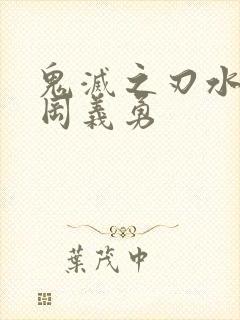 鬼滅之刃水
岡義勇
葉茂中